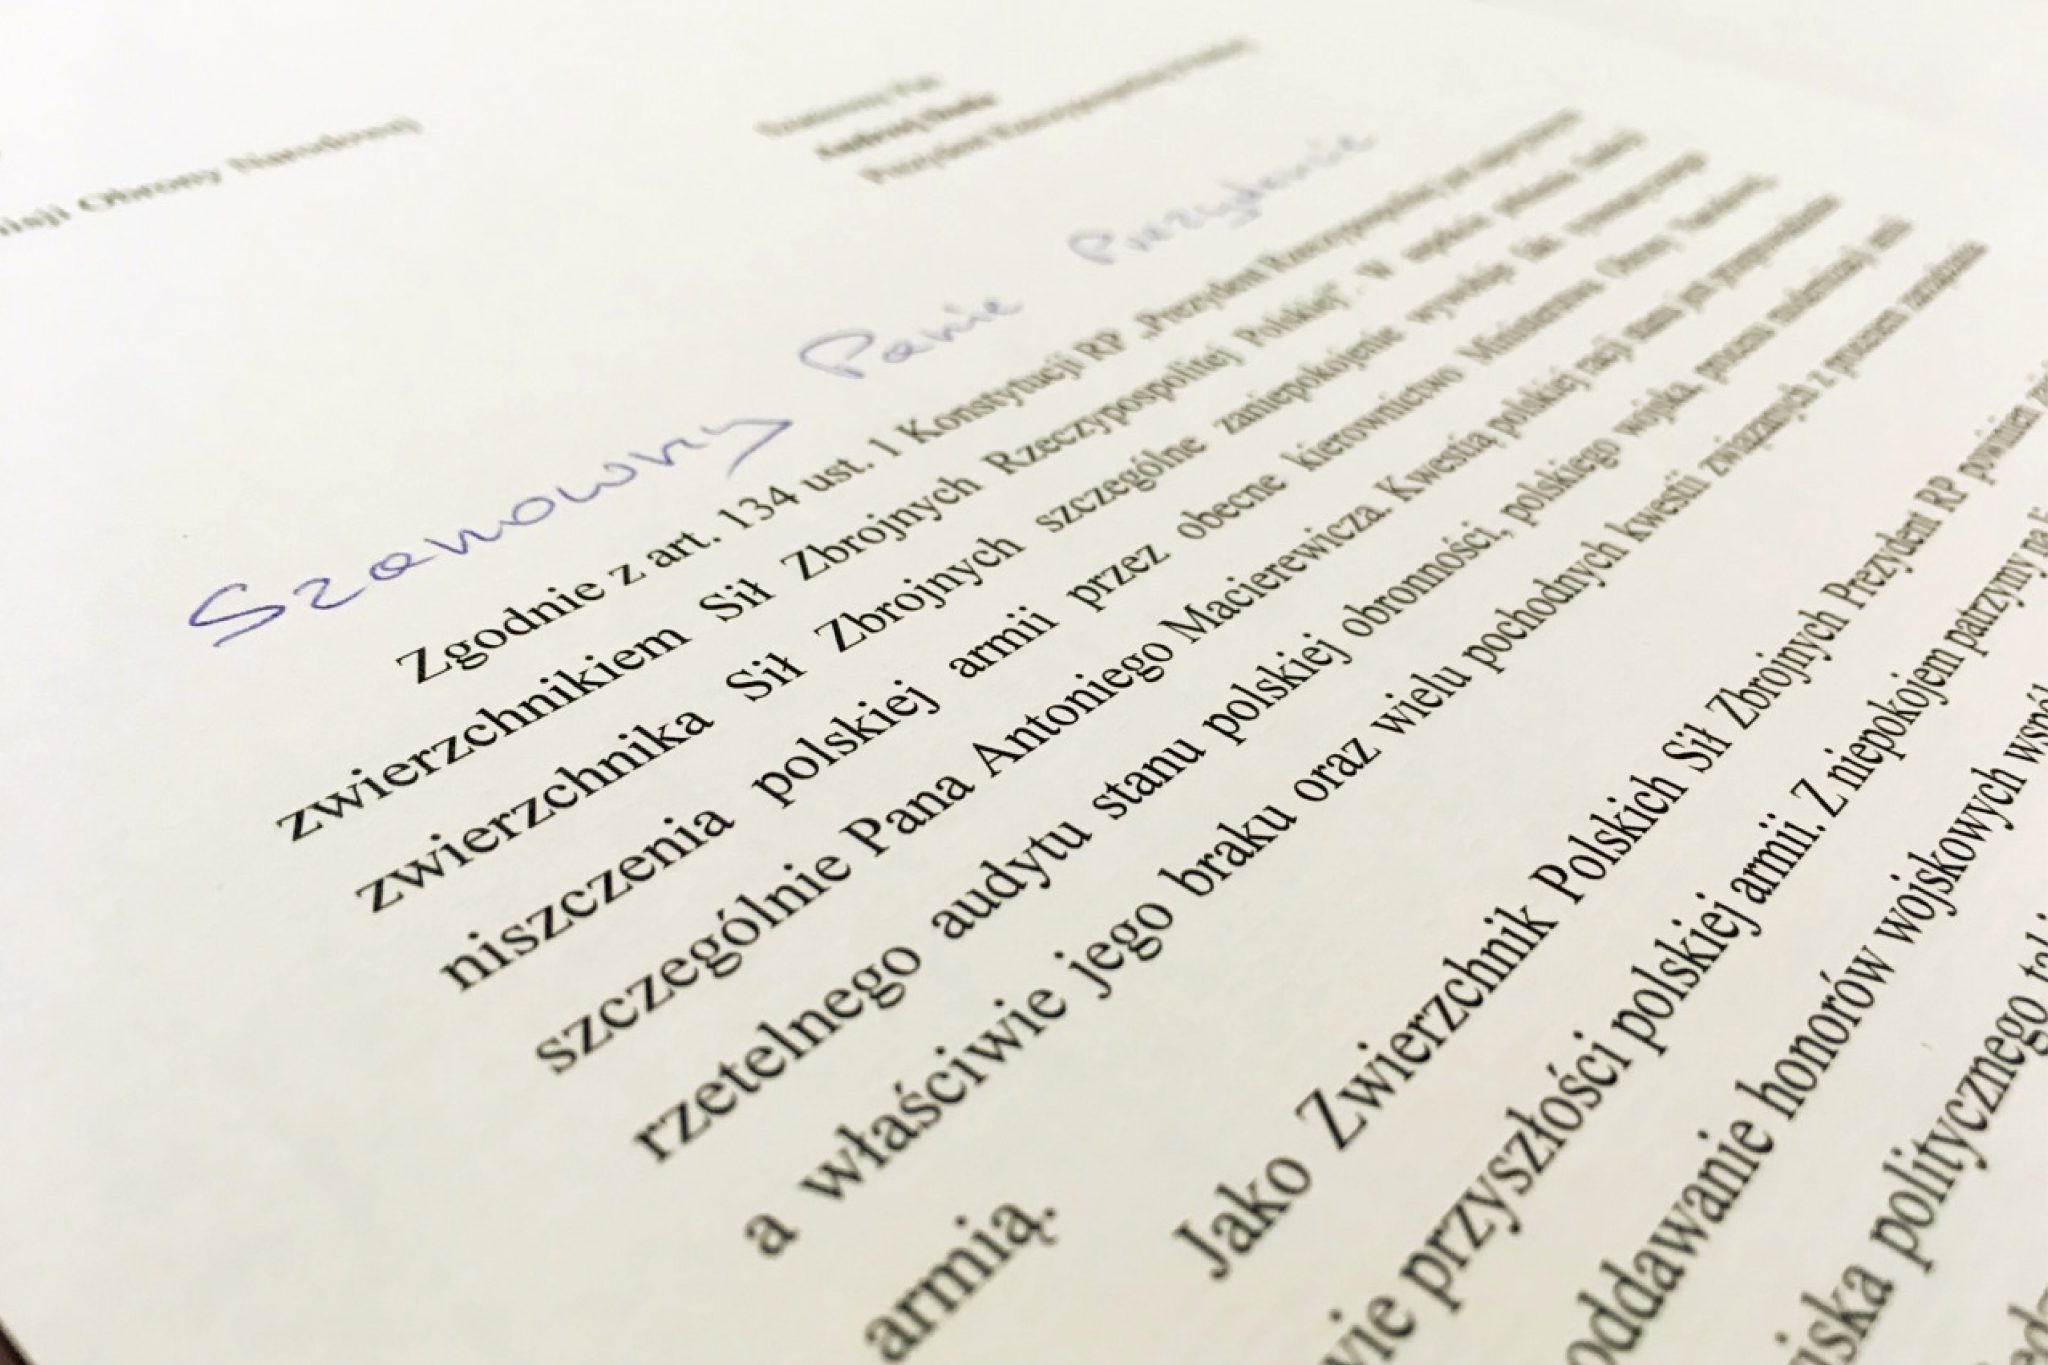 Obrony Narodowej
Szanowny Pan
Andrzej Duda
Prezydent Rzeczypospolitej Polskiej
Szanowny Panie Prezydencie
Zgodnie z art. 134 ust. 1 Konstytucji RP „Prezydent Rzeczypospolitej jest najwyższym
zwierzchnikiem Sił Zbrojnych Rzeczypospolitej Polskiej”. W
zwierzchnika Sił Zbrojnych szczególne zaniepokojenie wywołuje fakt systematycznego
niszczenia polskiej armii przez obecne kierownictwo Ministerstwa Obrony Narodowej,
szczególnie Pana Antoniego Macierewicza. Kwestią polskiej racji stanu jest przeprowadzenie
rzetelnego audytu stanu polskiej obronności, polskiego wojska, procesu modernizacji armii
a właściwie jego braku oraz wielu pochodnych kwestii związanych z procesem zarządzania
armią.
Jako Zwierzchnik Polskich Sił Zbrojnych Prezydent RP powinien
przyszłości polskiej armii. Z niepokojem patrzymy na
oddawanie honorów wojskowych
politycznego